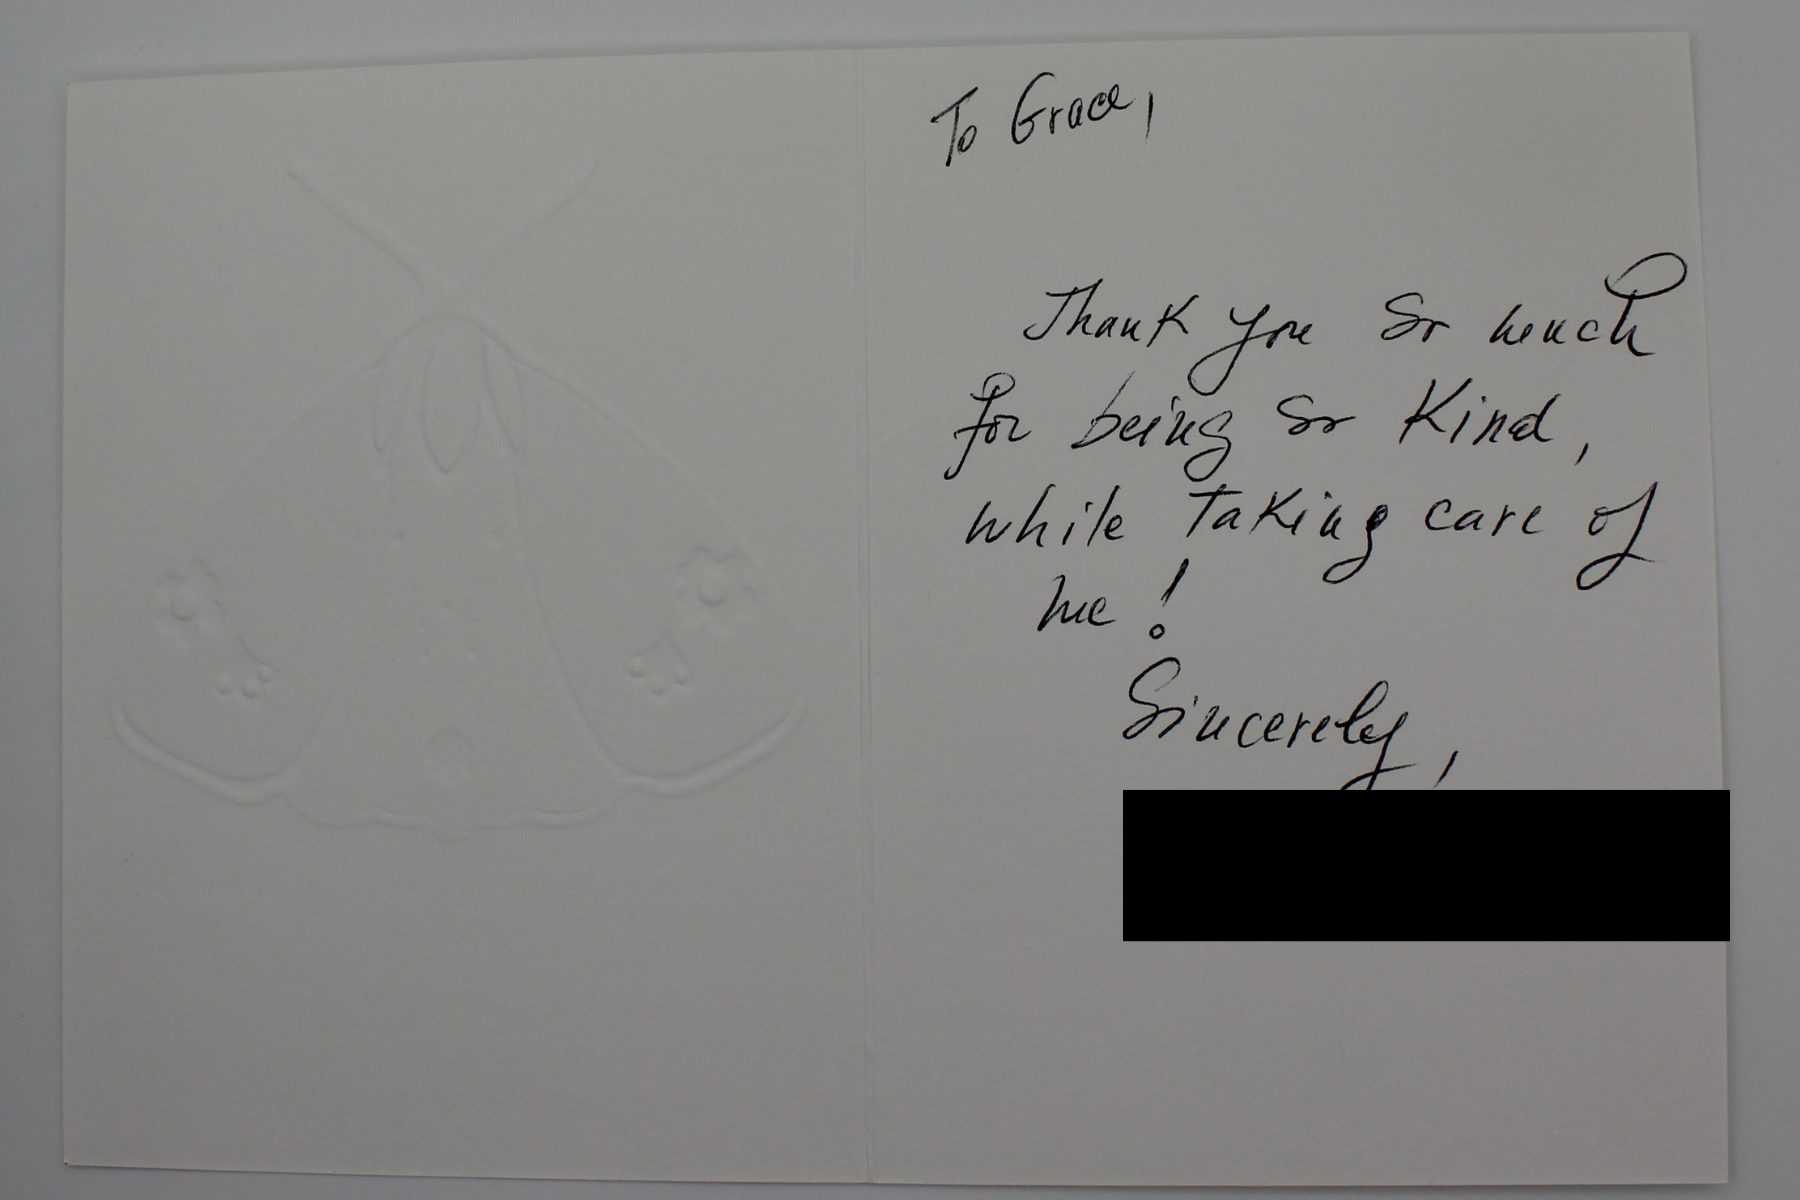 To Grace,
Thank you so much
for being so kind,
while taking care of
me!
Sincerely,